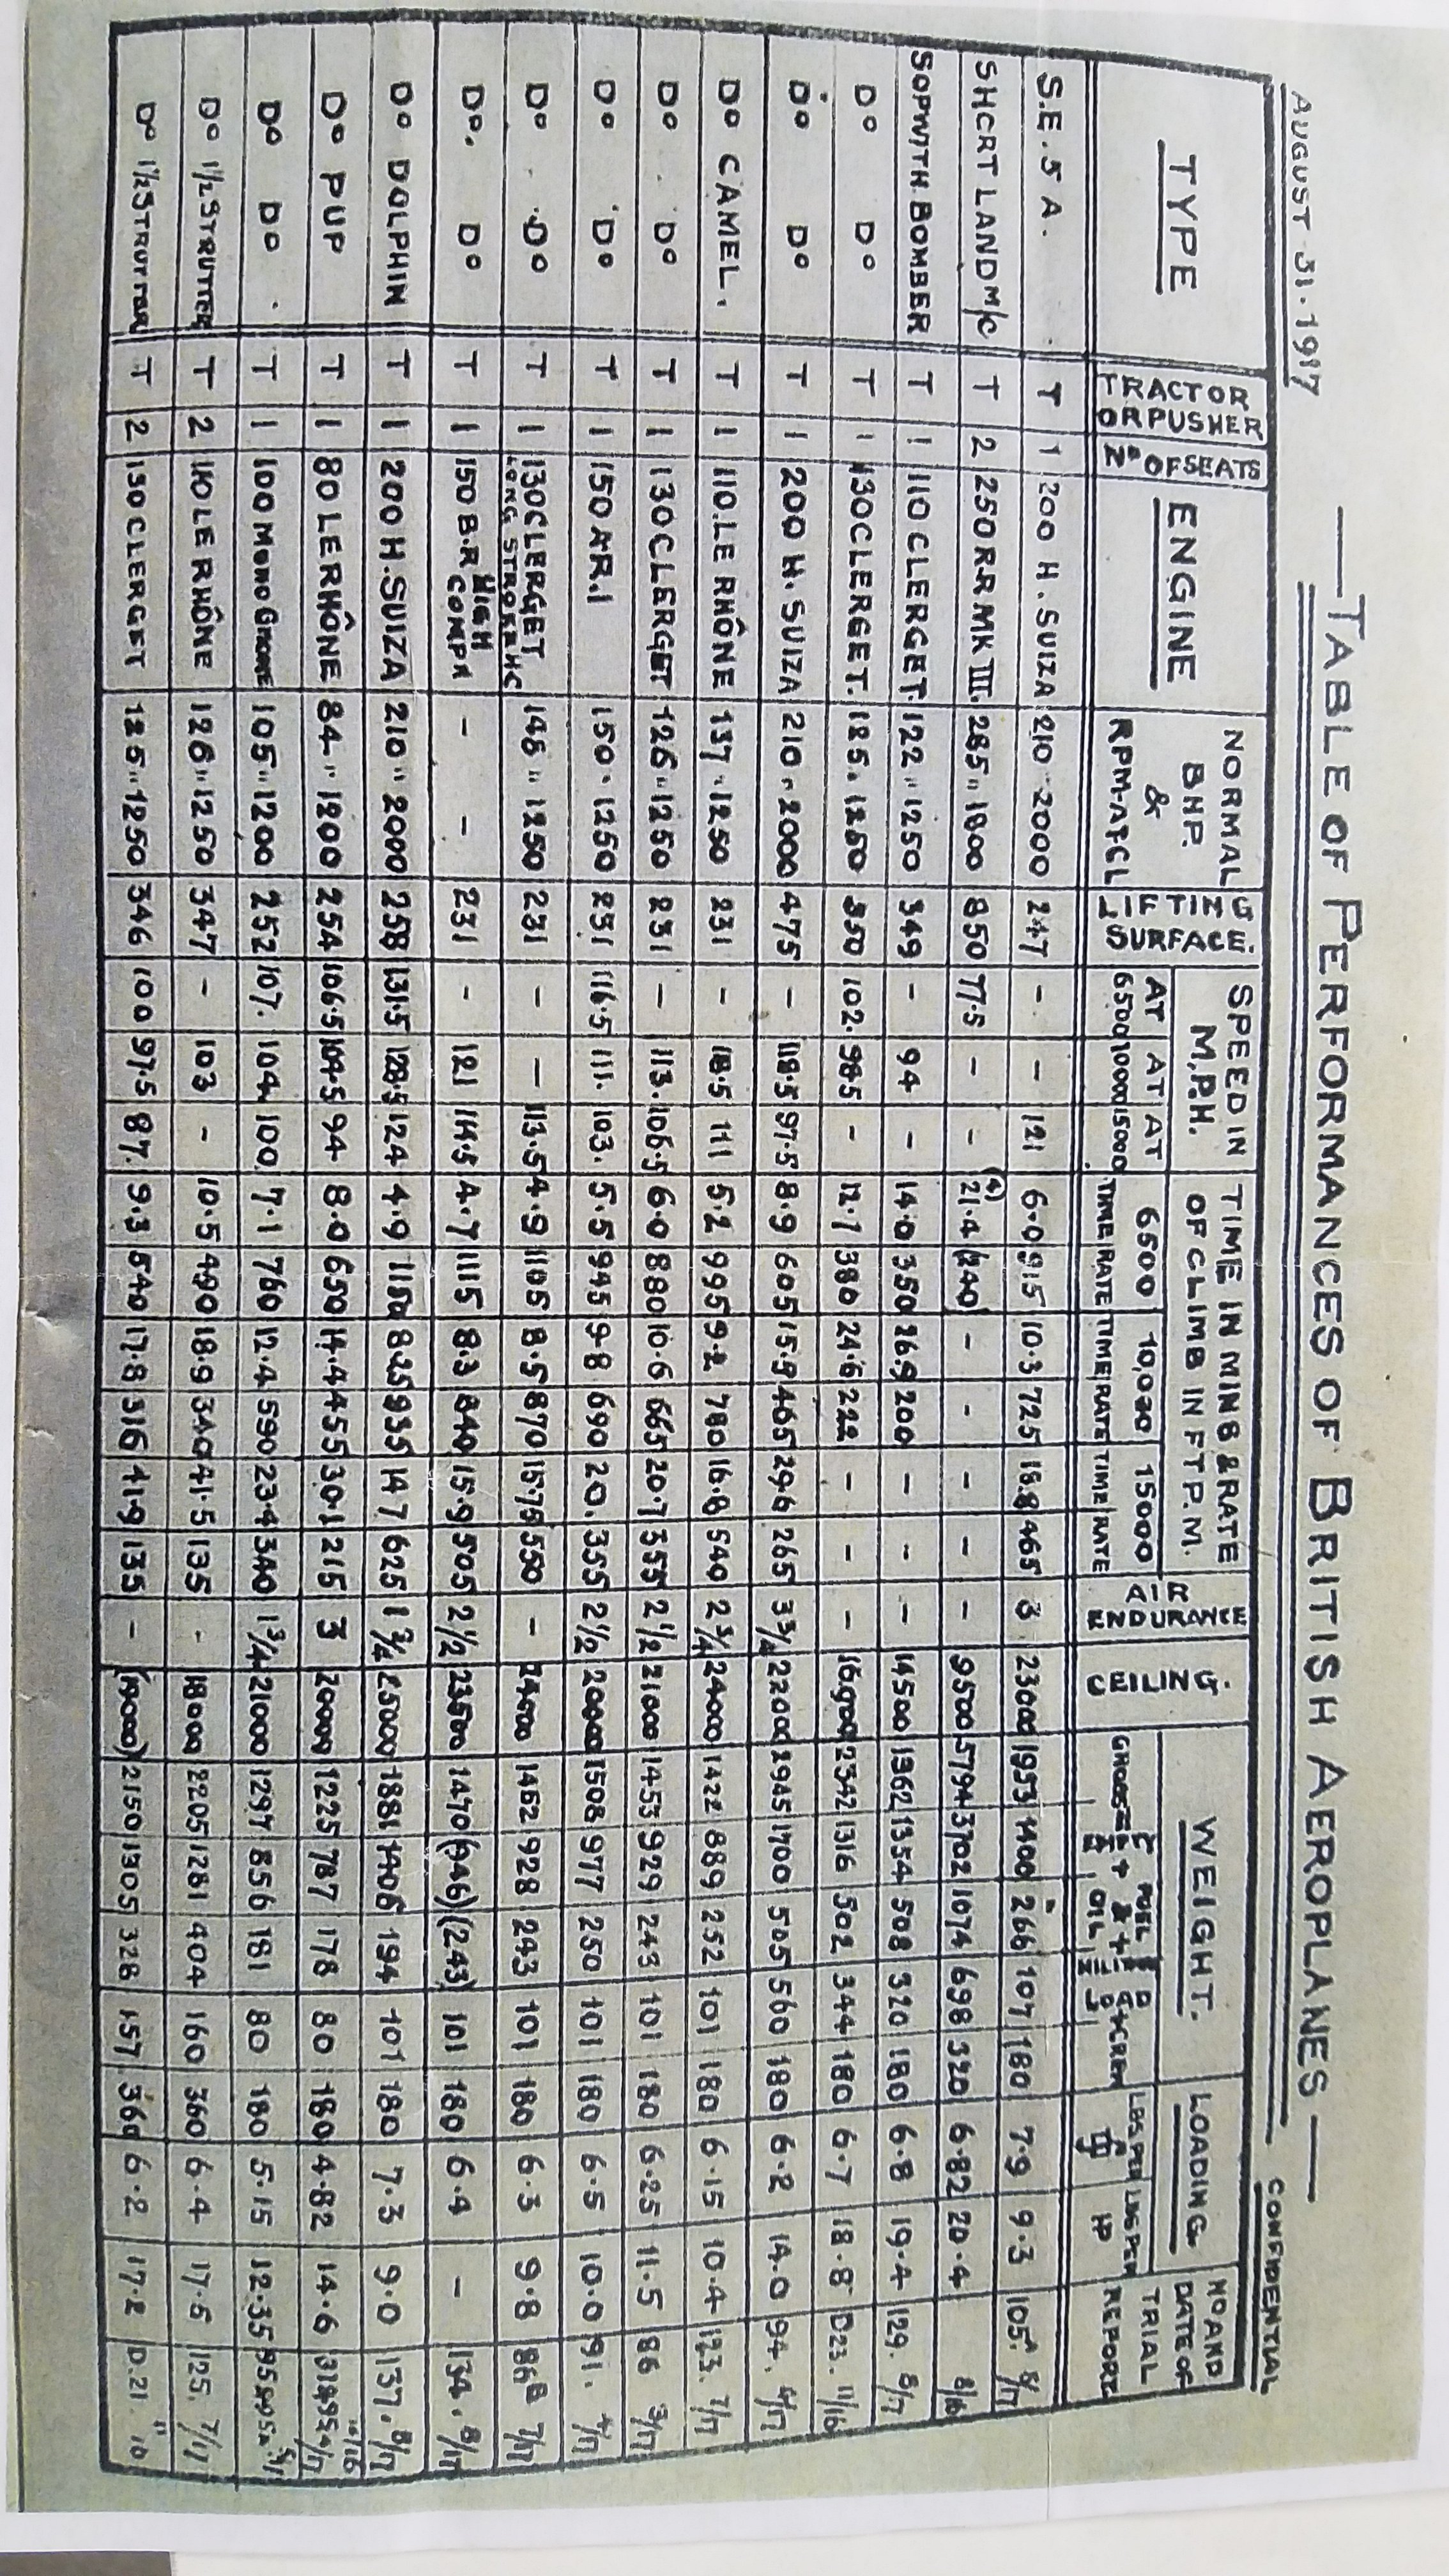 AUGUST 31·1917
—TABLE OF PERFORMANCES OF BRITISH AEROPLANES—
CONFIDENTIAL
TYPE TRACTOR OR PUSHER Nº OF SEATS ENGINE NORMAL BHP. & RPM-AFCL LIFTING SURFACE. SPEED IN M.P.H. TIME IN MINS & RATE OF CLIMB IN FT P.M. AIR ENDURANCE CEILING. WEIGHT. LOADING. Nº AND DATE OF TRIAL REPORT.
AT 6500 AT 10000 AT 15000 6500 10,000 15000 GROSS FUEL & OIL CREW LBS PER LBS PER HP
TIME RATE TIME RATE TIME RATE
S.E. 5 A. T 1 200 H. SUIZA 210 " 2000 247 - - 121 6·0 915 10·3 725 18.8 465 3. 23000 1953 1400 266 107 180 7·9 9·3 105. 8/17
SHORT LAND M/C T 2 250 R·R MK III. 285 " 1800 850 77·5 - - (4) 21·4 (240) - - - - - 9500 5794 3702 1074 698 320 6·82 20·4 8/16
SOPWITH BOMBER T 1 110 CLERGET. 122 " 1250 349 - 94 - 14·0 350 26.9 200 - - - 14500 1354 508 320 180 6·8 19·4 129. 8/17
Dº Dº T 1 130 CLERGET. 1250 350 102. 98.5 - 12.7 380 24·6 222 - - - 16900 2342 1316 502 344 180 6·7 18·8 D23. 11/16
Dº Dº T 1 200 H. SUIZA 210 " 2000 475 - 118.5 97.5 8·9 605 15·9 465 29·6 265 3 3/4 22000 2945 1700 505 560 180 6·2 14.0 94. 4/17
Dº CAMEL. T 1 110. LE RHÔNE 137 " 1250 231 - 118.5 111 5·2 995 9·2 780 16·8 540 2 3/4 24000 1422 889 252 101 180 6·15 10·4 123. 7/17
Dº Dº T 1 130 CLERGET 126 " 1250 231 - 113. 106.5 6.0 880 10·6 665 20·7 355 2 1/2 21000 1453 929 243 101 180 6·25 11·5 86 3/17
Dº Dº T 1 150 A·R.1 150 " 1250 231 116.5 111. 103. 5·5 945 9·8 690 20. 355 2 1/2 20000 1508 977 250 101 180 6·5 10.0 91. 4/17
Dº Dº T 1 130 CLERGET LONG STROKE HC 1250 231 - - 113·5 4·9 1105 8·5 870 15·75 550 - 24000 1462 928 243 101 180 6·3 9·8 86B 7/17
Dº. Dº T 1 150 B·R HIGH COMPN - - 231 - 121 114.5 4·7 1115 8·3 840 15·9 505 2 1/2 23500 1470 (946) (243) 101 180 6·4 - 134. 8/17
Dº DOLPHIN T 1 200 H. SUIZA 210 " 2000 258 131·5 128·5 124 4·9 1150 8·25 935 14 7 625 1 3/4 25000 1881 1406 194 101 180 7·3 9·0 137. 8/17
Dº PUP T 1 80 LE RHÔNE 84 " 1200 254 106·5 104·5 94 8·0 650 14·4 455 30·1 215 3 20000 1225 787 178 80 180 4·82 14·6
Dº Dº T 1 100 MONO GNOME 105 " 1200 252 107. 104. 100. 7·1 760 12·4 590 23·4 340 1 3/4 21000 1297 856 181 80 180 5·15 12·35
Dº 1½ STRUTTER T 2 110 LE RHÔNE 126 " 1250 347 - 103 - 10·5 490 18·9 340 41·5 135 - 18000 2205 1281 404 160 360 6·4 17·5 125. 7/17
Dº 1½ STRUTTER T 2 130 CLERGET 125 " 1250 346 100 97.5 87. 9·3 540 17·8 316 41·9 135 - 2150 1305 328 157 360 6·2 17·2 D.21.